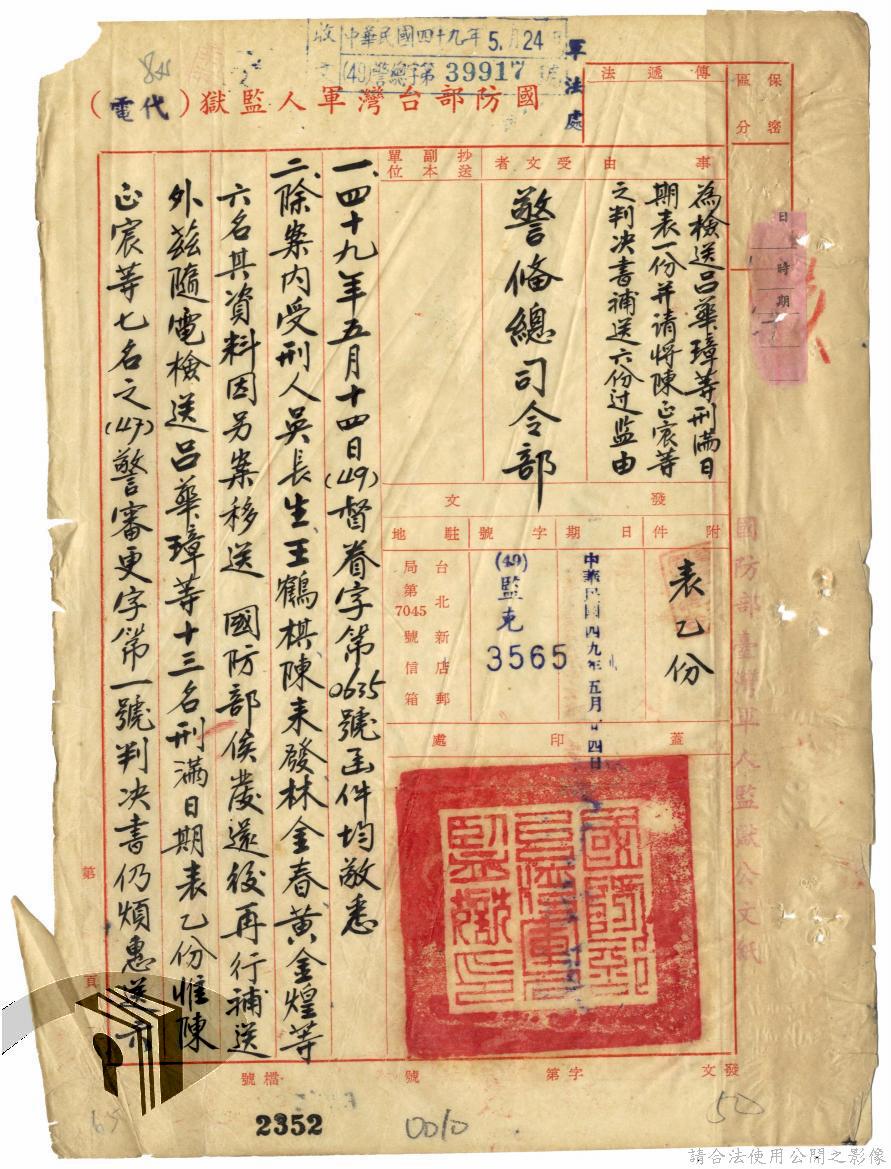 收文 中華民國四十九年5月24日
(49)警總字第39917號
軍法處
國防部台灣軍人監獄(代電)
保密區分
傳遞法
事由
為檢送呂華璋等刑滿日
期表一份并請將陳正宸等
之判決書補送六份過監由
受文者
警備總司令部
抄送副本單位
發文
附件
表乙份
日期
中華民國四九年五月廿四日
字號
(49)監克
3565
駐地
台北新店郵
局第7045號信箱
蓋印處
國防部台灣軍人監獄印
一、四十九年五月十四日(49)督眷字第0635號函件均敬悉
二、除案內受刑人吳長生王鶴棋陳來發林金春黃金煌等
六名其資料因另案移送 國防部俟發還後再行補送
外茲隨電檢送呂華璋等十三名刑滿日期表乙份惟陳
正宸等七名之(47)警審更字第一號判決書仍煩惠送六
日
時
期
國防部臺灣軍人監獄公文紙
第 頁
發文 字第 號
檔號
2352
0010
50
65
請合法使用公開之影像